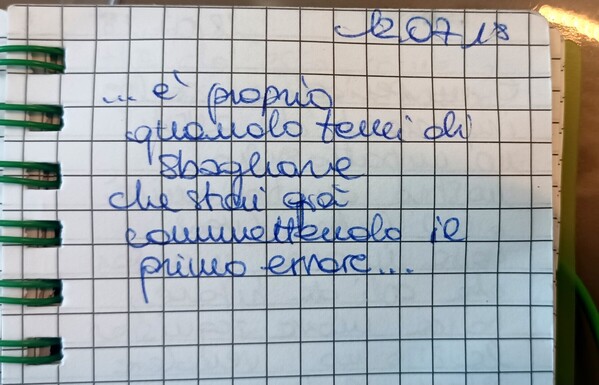 12 07 18
... è proprio
quando temi di
sbagliare
che stai già
commettendo il
primo errore...